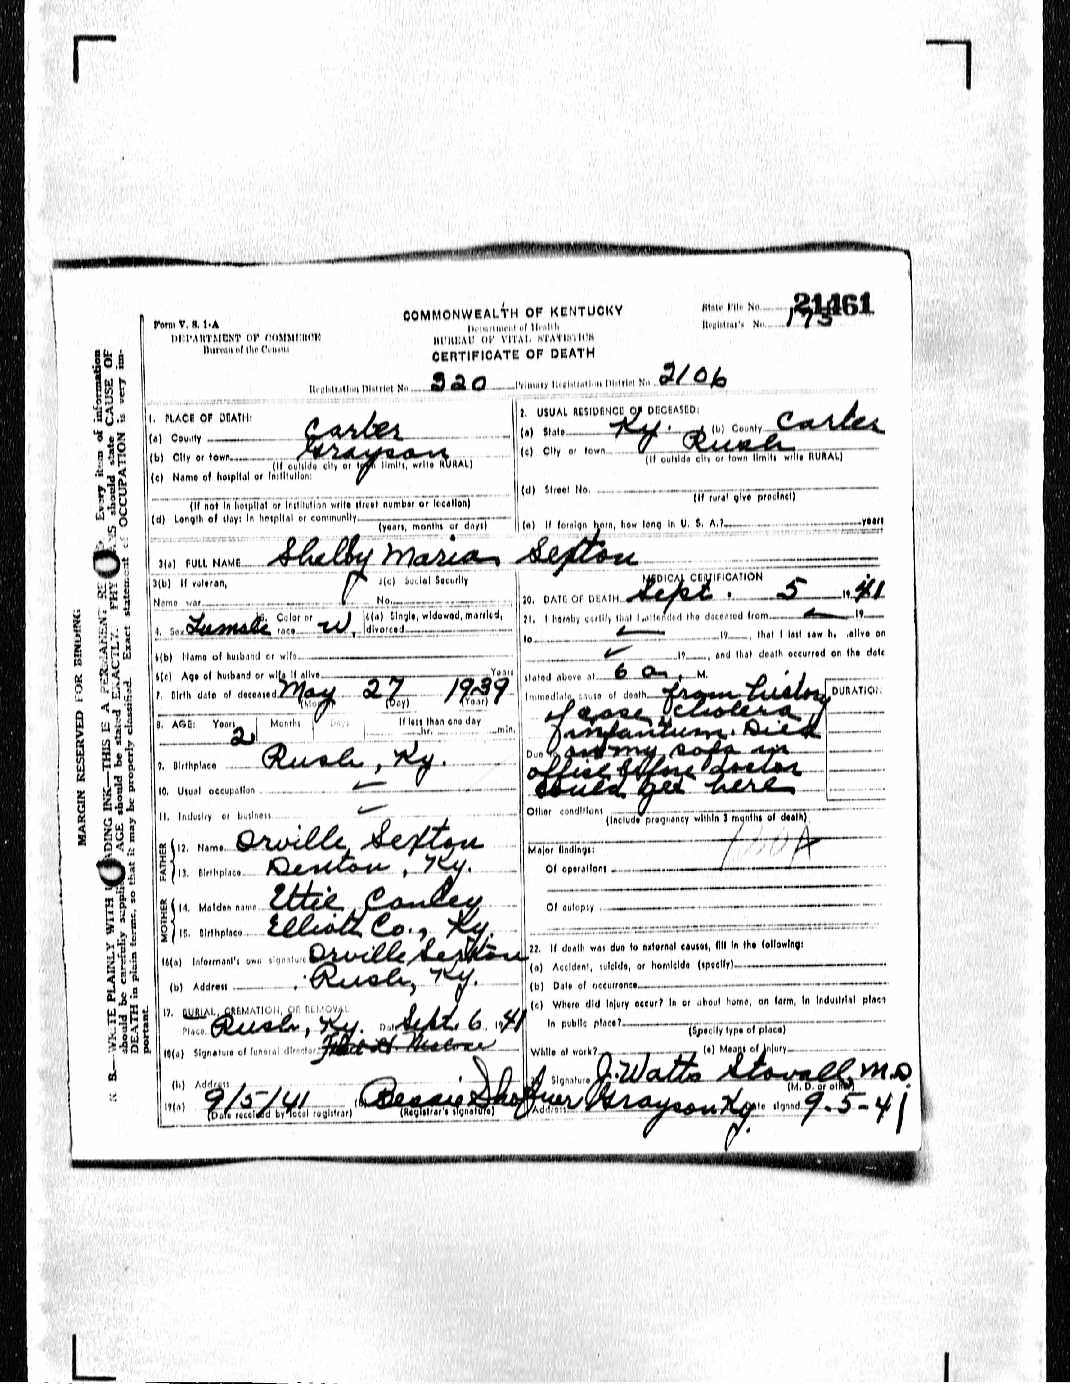 State File No. 21461
Registrar's No. 175
Form V. S. 1-A
DEPARTMENT OF COMMERCE
Bureau of the Census
COMMONWEALTH OF KENTUCKY
Department of Health
BUREAU OF VITAL STATISTICS
CERTIFICATE OF DEATH
Registration District No. 320 Primary Registration District No. 2106
MARGIN RESERVED FOR BINDING
1. PLACE OF DEATH:
(a) County Carter
(b) City or town Grayson
(If outside city or town limits, write RURAL)
(c) Name of hospital or institution:
(If not in hospital or institution write street number or location)
(d) Length of stay: In hospital or community
(years, months or days)
2. USUAL RESIDENCE OF DECEASED:
(a) State Ky. (b) County Carter
(c) City or town Rush
(If outside city or town limits write RURAL)
(d) Street No.
(If rural give precinct)
(e) If foreign born, how long in U. S. A.? years
3(a) FULL NAME Shelby Maria Sexton
3(b) If veteran, 3(c) Social Security
Name war No.
4. Sex Female 5. Color or race W. 6(a) Single, widowed, married, divorced
6(b) Name of husband or wife
6(c) Age of husband or wife if alive Years
7. Birth date of deceased May 27 1939
(Month) (Day) (Year)
8. AGE: Years Months Days If less than one day
2 hr. min.
9. Birthplace Rush, Ky.
10. Usual occupation
11. Industry or business
FATHER
12. Name Orville Sexton
13. Birthplace Denton, Ky.
MOTHER
14. Maiden name Ettie Conley
15. Birthplace Elliott Co., Ky.
16(a) Informant's own signature Orville Sexton
(b) Address Rush, Ky.
17. BURIAL, CREMATION, OR REMOVAL
Place Rush, Ky. Date Sept. 6, 1941
18(a) Signature of funeral director
(b) Address
19(a) 9/5/41 Bessie Shaffner
(Date received by local registrar) (Registrar's signature)
MEDICAL CERTIFICATION
20. DATE OF DEATH Sept. 5 1941
21. I hereby certify that I attended the deceased from 19
to 19, that I last saw h alive on
19, and that death occurred on the date
stated above at 6 a. M.
Immediate cause of death from history DURATION
of case cholera
infantum. Died
Due to on my sofa in
office before doctor
could get here
Other conditions
(Include pregnancy within 3 months of death)
Major findings:
Of operations
Of autopsy
22. If death was due to external causes, fill in the following:
(a) Accident, suicide, or homicide (specify)
(b) Date of occurrence
(c) Where did injury occur? In or about home, on farm, in industrial place
In public place?
(Specify type of place)
While at work? (e) Means of Injury
Signature J. Watts Stovall, M.D.
(M. D. or other)
Address Grayson Ky. Date signed 9-5-41